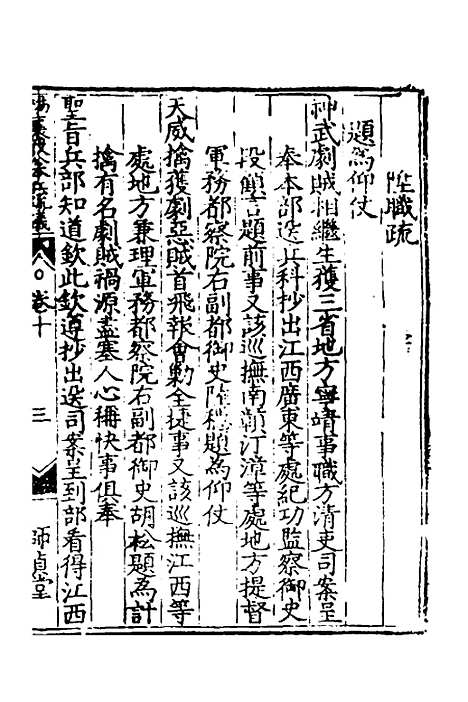 陞職疏
題為仰仗
神武劇賊相繼生獲三省地方寧靖事職方清吏司案呈
奉本部送兵科抄出江西廣東等處紀功監察御史
段顧言題前事又該巡撫南贛汀漳等處地方提督
軍務都察院右副都御史陸穩題為仰仗
天威擒獲劇惡賊首飛報會勦全捷事又該巡撫江西等
處地方兼理軍務都察院右副都御史胡松題為計
擒有名劇賊禍源盡塞人心稱快事俱奉
聖旨兵部知道欽此欽遵抄出送司案呈到部看得江西
卷十
三
師貞堂